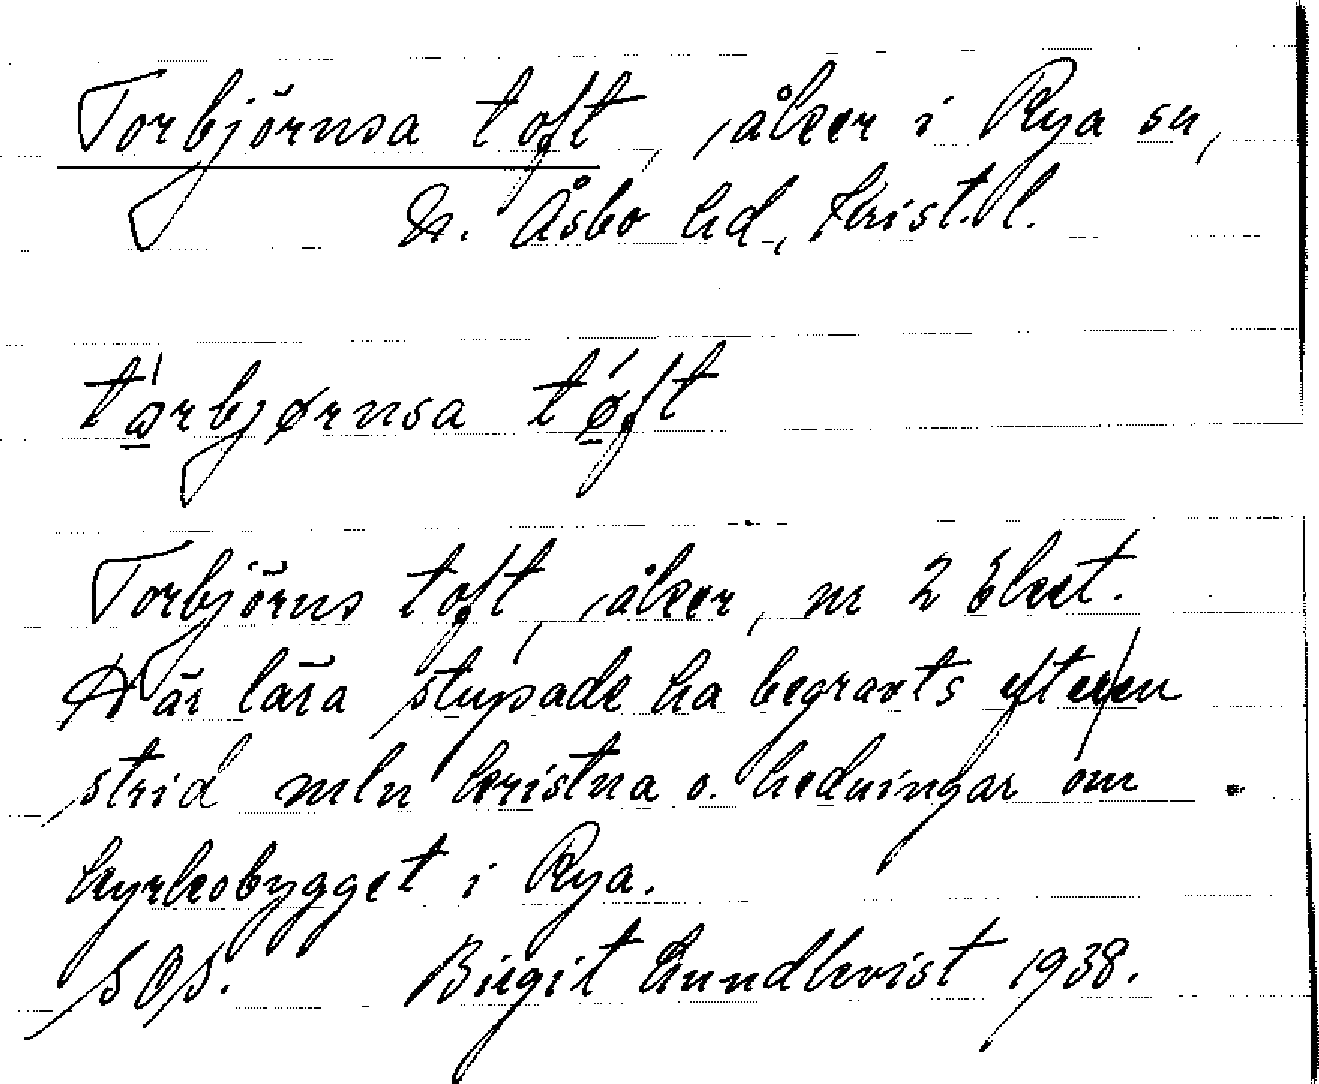 Torbjörnsa toft, åker i Rya sn,
N. Åsbo hd, Krist. l.
tárbjørnsa tǿft
Torbjörns toft, åker, nr 2 Elest.
Där lära stupade ha begravts efter en
strid mln kristna o. hedningar om
kyrkobygget i Rya.
SOS. Birgit Lundkvist 1938.